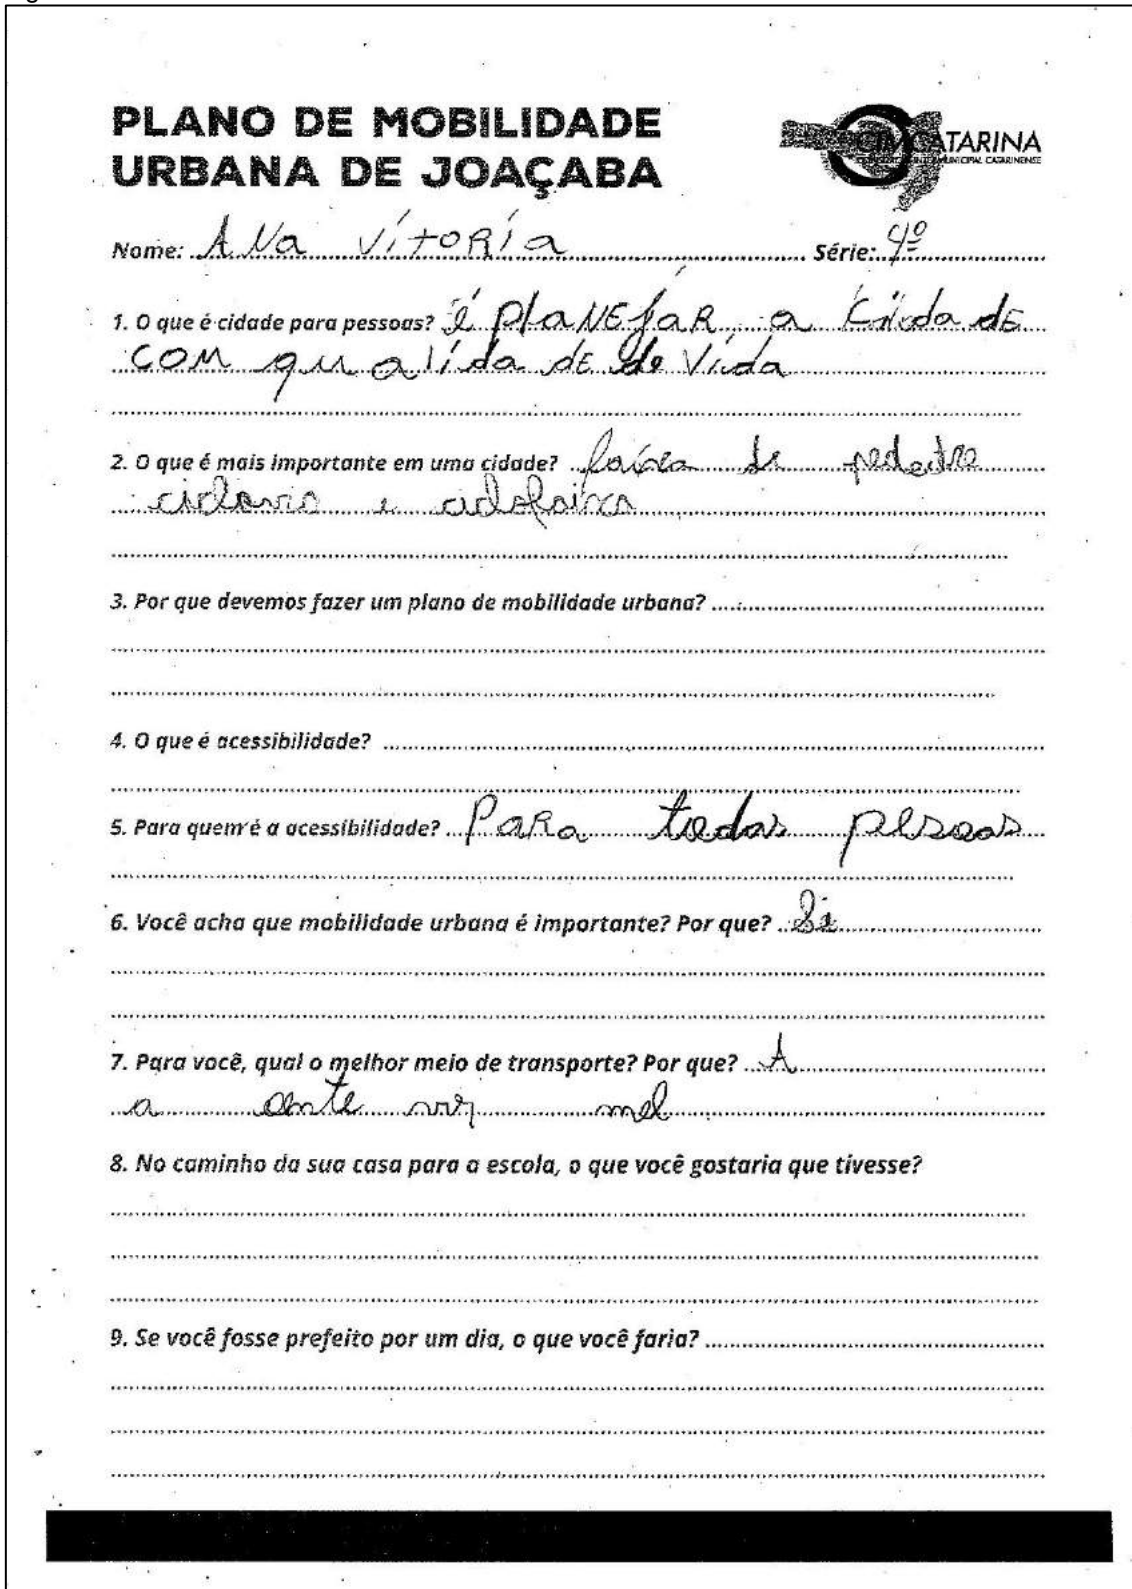 PLANO DE MOBILIDADE
URBANA DE JOAÇABA
CIMCATARINA
CONSÓRCIO INTERMUNICIPAL CATARINENSE
Nome: ANa VitORia Série: 4º
1. O que é cidade para pessoas? é PlaNEjaR, a Cidade
COM qualidade de Vida
2. O que é mais importante em uma cidade? faixa de pedestre
ciclovia e ciclofaixa
3. Por que devemos fazer um plano de mobilidade urbana?
4. O que é acessibilidade?
5. Para quem é a acessibilidade? PaRa todas pessoas
6. Você acha que mobilidade urbana é importante? Por que? Si
7. Para você, qual o melhor meio de transporte? Por que? A
a mel
8. No caminho da sua casa para a escola, o que você gostaria que tivesse?
9. Se você fosse prefeito por um dia, o que você faria?